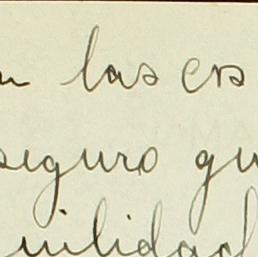 las es
seguro qu
uilidad